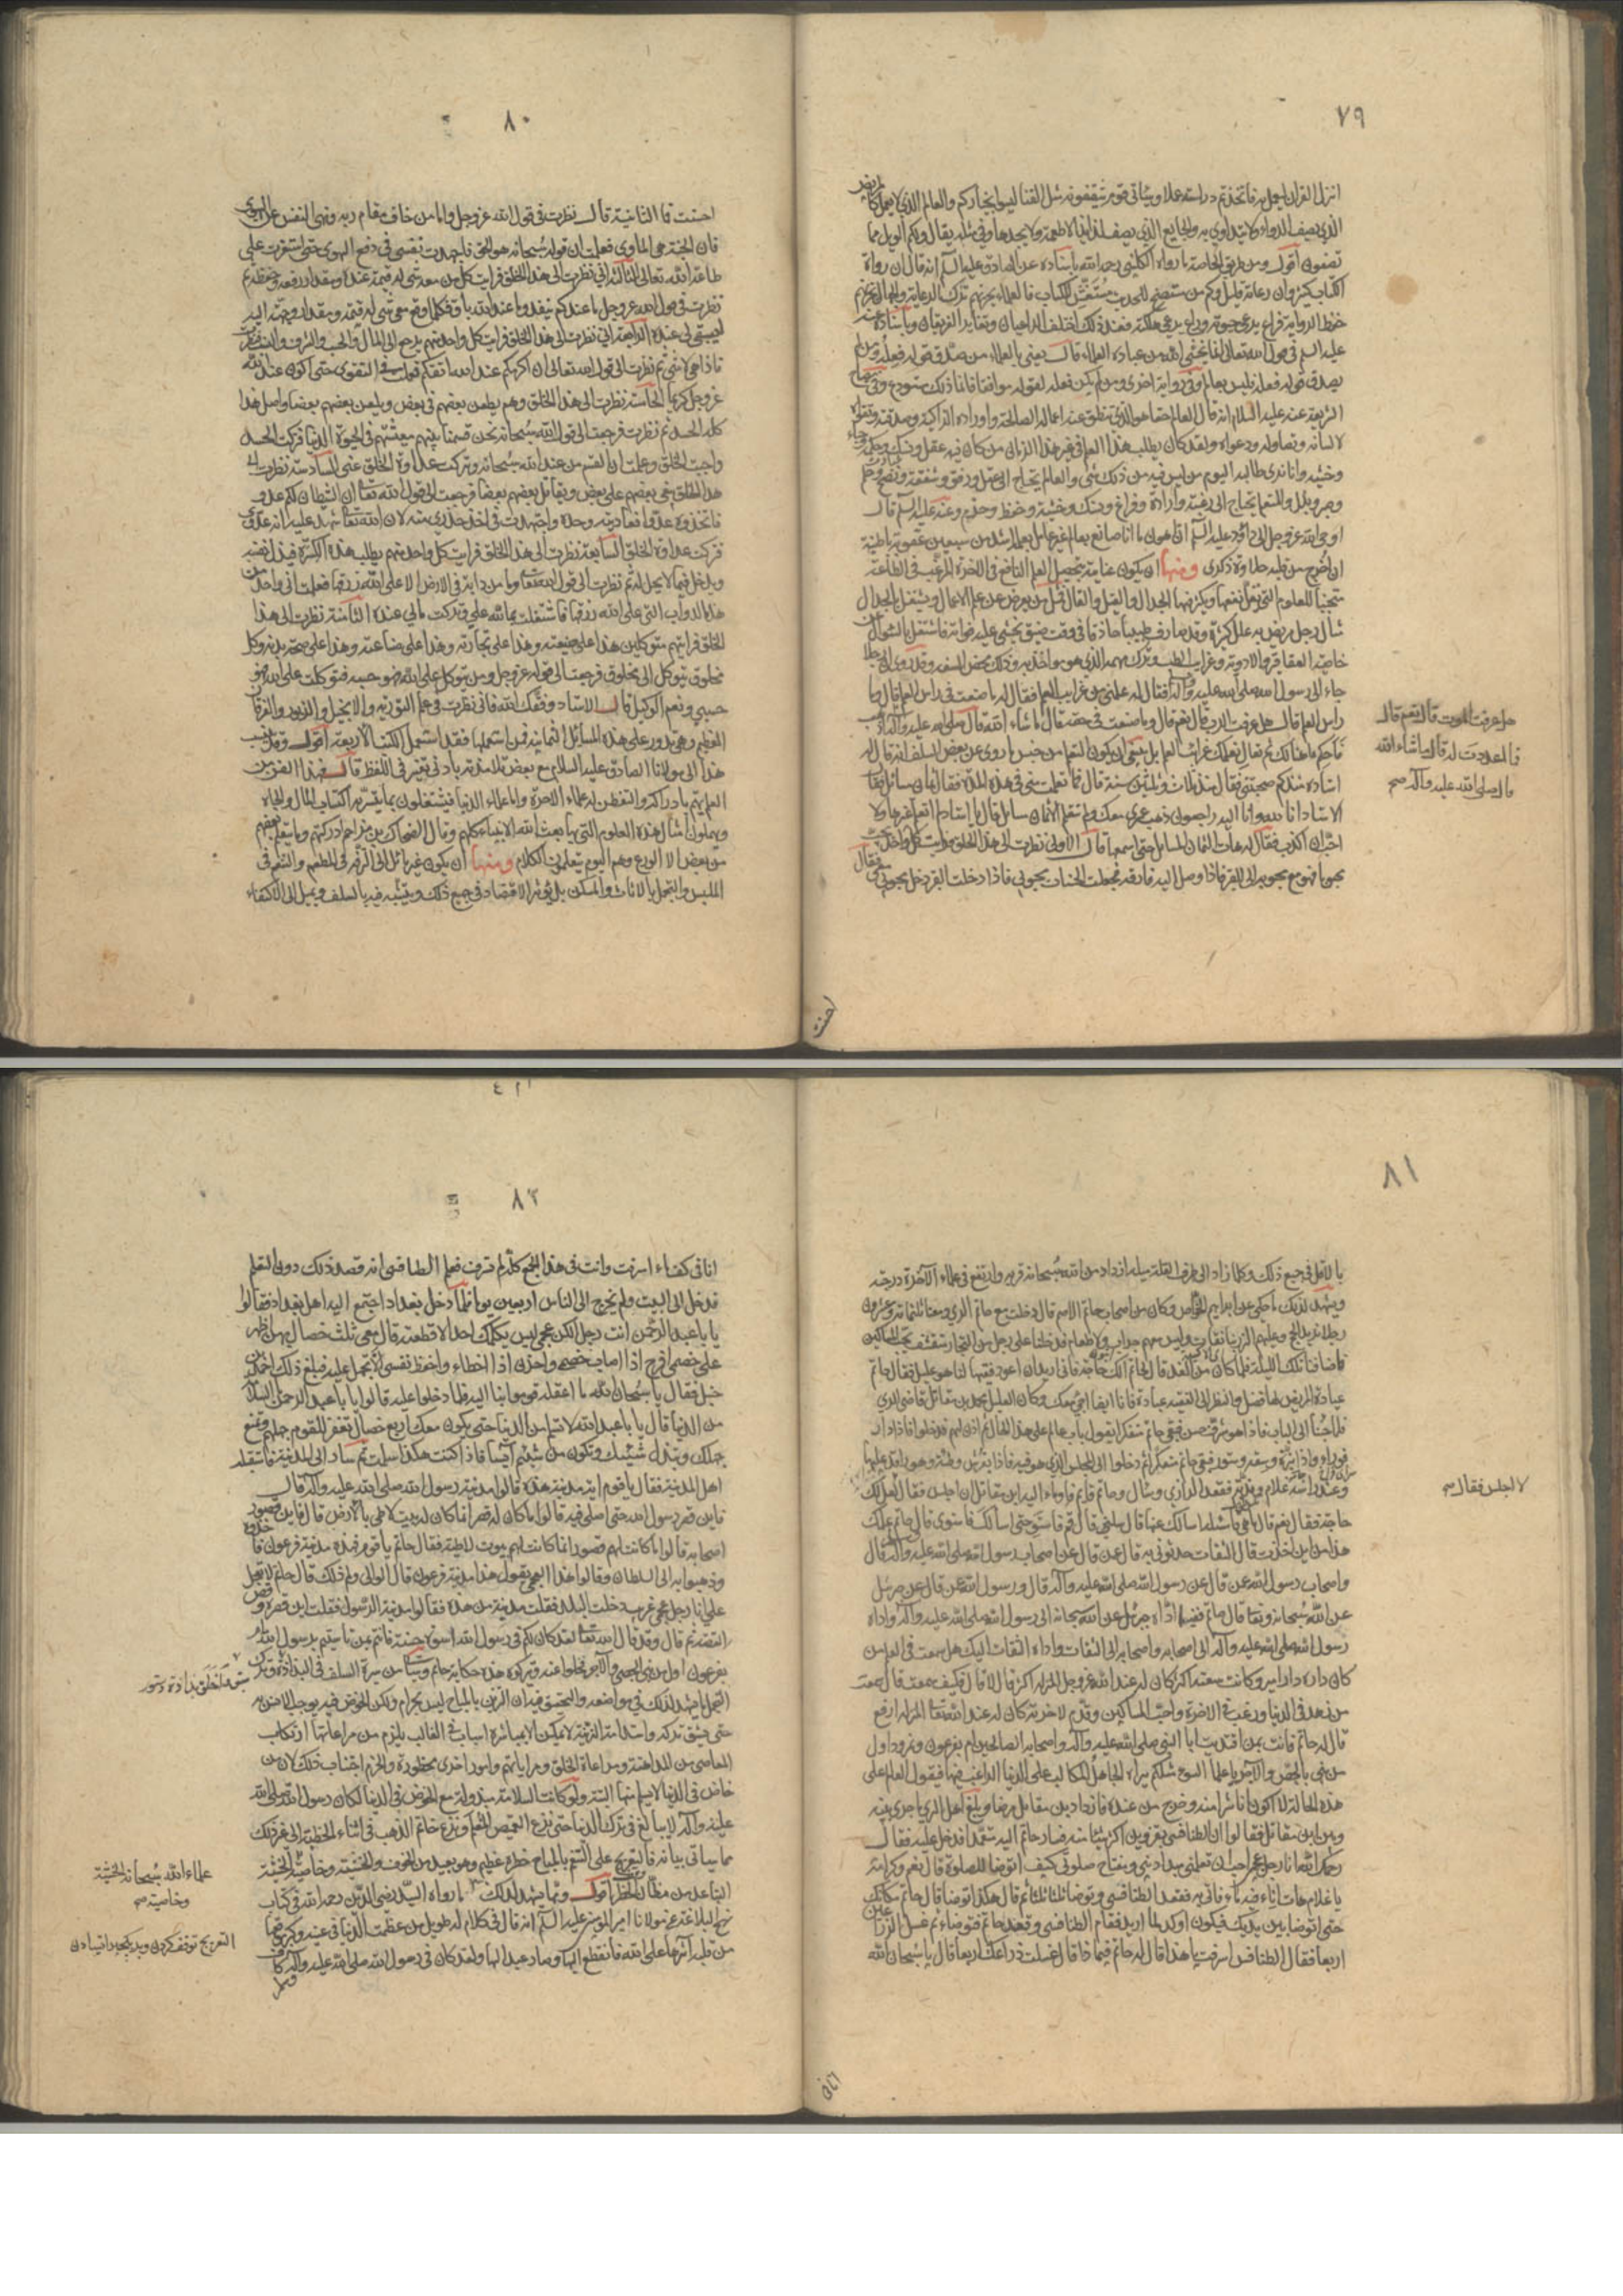 ٧٩
انزل القران ليعمل به فاتخذتم دراسته عملا وسياتي قوم يثقفونه مثل القنا ليسوا بخياركم والعالم الذي لا يعمل كالمريض
الذي يصف الدواء ولا يتداوى به والجايع الذي يصف لذايذ الاطعمة ولا يجدها وفي مثله يقال ولكم الويل مما
تصفون اقول ومن طريق الخاصة ما رواه الكليني رحمه الله باسناده عن الصادق عليه السلم انه قال ان رواة
الكتاب كثير وان رعاته قليل وكم من مستنصح للحديث مستغش للكتاب فالعلماء يحزنهم ترك الرعاية والجهال يحزنهم
حفظ الرواية فراع يرعى حيوته وراع يرعى هلكته فعند ذلك اختلف الراعيان وتغاير الفريقان وباسناده عنه
عليه السلم في قول الله تعالى انما يخشى الله من عباده العلماء قال يعني بالعلماء من صدق قوله فعله ومن لم
يصدق قوله فعله فليس بعالم وفي رواية اخرى ومن لم يكن فعله لقوله موافقا فانما ذلك مستودع وفي مصباح
الشريعة عنه عليه السلام انه قال العالم حقا هو الذي ينطق عنه اعماله الصالحة واوراده الزاكية وصدقه وتقواه
لا لسانه وتصاوله ودعواه ولقد كان يطلب هذا العلم في غير هذا الزمان من كان فيه عقل ونسك وحكمة وحياء
وخشية وانا نرى طالبه اليوم من ليس فيه من ذلك شي والعالم يحتاج الى عقل ورفق وشفقة ونصح وحلم
وصبر وبذل والمتعلم يحتاج الى رغبة وارادة وفراغ ونسك وخشية وحفظ وحزم وعنه عليه السلم قال
اوحى الله عز وجل الى داود عليه السلم ان اهون ما انا صانع بعالم غير عامل بعلمه اشد من سبعين عقوبة باطنة
ان اخرج من قلبه حلاوة ذكرى ومنها ان يكون عنايته بتحصيل العلم النافع في الاخرة المرغب في الطاعة
متجنبا للعلوم التي يقل نفعها ويكثر فيها الجدال والقيل والقال فمثل من يعرض عن علم الاعمال ويشتغل بالجدال
مثال رجل مريض به علل كثيرة وقد صادف طبيبا حاذقا في وقت ضيق يخشى عليه فواته فاشتغل بالسوال عن
خاصية العقاقير والادوية وغرايب الطب وترك مهمه الذي هو مواخذ به وذلك محض السفه وقد روى ان رجلا
جاء الى رسول الله صلى الله عليه وآله فقال له علمني من غرايب العلم فقال له ما صنعت في راس العلم قال وما
راس العلم قال هل عرفت الرب قال نعم قال وما صنعت في حقه قال ما شاء الله قال صلى الله عليه وآله اذهب
فاحكم ما هنالك ثم تعال نعلمك غرائب العلم بل ينبغي ان يكون المتعلم من جنس ما روى عن بعض السلف انه قال له
استاده منذ كم صحبتني فقال منذ ثلاث وثلثين سنة قال فما تعلمت مني في هذه المدة فقال ثمان مسائل فقال
الاستاد انا لله وانا اليه راجعون ذهب عمري معك ولم تتعلم الا ثمان مسائل قال يا استاد لم اتعلم غيرها ولا
احب ان اكذب فقال له هات الثمان المسايل حتى اسمعها قال الاولى نظرت الى هذا الخلق فرايت كل واحد يحب
محبوبا فهو مع محبوبه الى القبر فاذا وصل اليه فارقه فجعلت الحسنات محبوبي فاذا دخلت القبر دخل محبوبي معي فقال
احسنت
هل عرفت الموت قال نعم قال
فما اعددت له قال ما شاء الله
قال صلى الله عليه وآله صح
٨٠
احسنت فما الثانية قال نظرت في قول الله عز وجل واما من خاف مقام ربه ونهى النفس عن الهوى
فان الجنة هي الماوى فعلمت ان قوله سبحانه هو الحق فاجهدت نفسي في دفع الهوى حتى استقرت على
طاعة الله تعالى الثالثة اني نظرت الى هذا الخلق فرايت كل من معه شي له قيمة عنده ومقدار رفعه وحفظه ثم
نظرت في قول الله عز وجل ما عندكم ينفد وما عند الله باق فكلما وقع معي شي له قيمة ومقدار وجهته اليه
ليبقى لي عنده الرابعة اني نظرت الى هذا الخلق فرايت كل واحد منهم يرجع الى المال والحسب والشرف والنسب فنظرت
فاذا هي لا شي ثم نظرت الى قول الله تعالى ان اكرمكم عند الله اتقيكم فعملت في التقوى حتى اكون عند الله
عز وجل كريما الخامسة نظرت الى هذا الخلق وهم يطعن بعضهم في بعض ويلعن بعضهم بعضا واصل هذا
كله الحسد ثم نظرت فرجعت الى قول الله سبحانه نحن قسمنا بينهم معيشتهم في الحيوة الدنيا فتركت الحسد
واجبت الخلق وعلمت ان القسم من عند الله سبحانه وتركت عداوة الخلق عني السادسة نظرت الى
هذا الخلق يبغي بعضهم على بعض ويقاتل بعضهم بعضا فرجعت الى قول الله تعالى ان الشيطان لكم عدو
فاتخذوه عدوا فعاديته وحده واجتهدت في اخذ حذري منه لان الله تعالى شهد عليه انه عدو لي
فتركت عداوة الخلق السابعة نظرت الى هذا الخلق فرايت كل واحد منهم يطلب هذه الكسرة فيذل نفسه
ويدخل فيما لا يحل له ثم نظرت الى قول الله تعالى وما من دابة في الارض الا على الله رزقها فعلمت اني واحد من
هذه الدواب التي على الله رزقها فاشتغلت بما لله علي وتركت مالي عنده الثامنة نظرت الى هذا
الخلق فرايتهم متوكلين هذا على ضيعته وهذا على تجارته وهذا على صناعته وهذا على صحة بدنه وكل
مخلوق يتوكل الى مخلوق فرجعت الى قوله عز وجل ومن يتوكل على الله فهو حسبه فتوكلت على الله فهو
حسبي ونعم الوكيل قال الاستاد وفقك الله فاني نظرت في علم التورية والانجيل والزبور والفرقان
العظيم وهي تدور على هذه المسائل الثمانية فمن استعملها فقد استعمل الكتب الاربعة اقول وقد نسب
هذا الى مولانا الصادق عليه السلام مع بعض تلامذته بادنى تغير في اللفظ قال فهذا الفن من
العلم يهتم بادراكه والتفطن له علماء الاخرة واما علماء الدنيا فيشتغلون بما يتيسر به اكتساب المال والجاه
ويهملون امثال هذه العلوم التي بها بعث الله الانبياء كلهم وقال الضحاك بن مزاحم ادركتهم وما يتعلم بعضهم
من بعض الا الورع وهم اليوم يتعلمون الكلام ومنها ان يكون غير مائل الى الترفه في المطعم والتنعم في
الملبس والتجمل بالاثاث والمسكن بل يؤثر الاقتصاد في جميع ذلك ويتشبه فيه بالسلف ويميل الى الاكتفاء
٨١
بالاقل في جميع ذلك وكلما زاد الى طرف القلة ميله ازداد من الله سبحانه قربه وارتفع في علماء الآخرة درجته
ويشهد لذلك ما حكي عن ابراهيم الخواص وكان من اصحاب حاتم الاصم قال دخلت مع حاتم الري ومعنا ثلثمائة وعشرون
رجلا نريد الحج وعليهم الزرنباتقات وليس معهم جراب ولا طعام فدخلنا على رجل من التجار متقشف يحب المساكين
فاضافنا تلك الليلة فلما كان من الغد قال لحاتم الك حاجة فاني اريد ان اعود فقيها لنا هو عليل فقال حاتم
عيادة المريض لها فضل والنظر الى الفقيه عبادة فانا ايضا اجيء معك وكان العليل محمد بن مقاتل قاضي الري
فلما جئنا الى الباب فاذا هو مشرف حسن فبقي حاتم متفكرا يقول باب عالم على هذا الحال ثم اذن لهم فدخلوا فاذا دار
قوراء واذا بزة وسعة وستور فبقي حاتم متفكرا ثم دخلوا الى المجلس الذي هو فيه فاذا بفرش وطئة وهو راقد عليها
وعند راسه غلام وبيده مذبة فقعد الرازي وسال وحاتم قائم فاوماء اليه ابن مقاتل ان اجلس فقال لعل لك
حاجة فقال نعم قال ما هي قال مسئلة اسالك عنها قال سلني قال قم فاستو حتى اسالك فاستوى قال حاتم علمك
هذا من اين اخذت قال الثقات حدثوني به قال عمن قال عن اصحاب رسول الله صلى الله عليه وآله قال
واصحاب رسول الله عمن قال عن رسول الله صلى الله عليه وآله قال ورسول الله عمن قال عن جبرئيل
عن الله سبحانه وتعالى قال حاتم ففيما اداه جبرئيل عن الله سبحانه الى رسول الله صلى الله عليه وآله واداه
رسول الله صلى الله عليه وآله الى اصحابه واصحابه الى الثقات واداه الثقات اليك هل سمعت في العلم من
كان داره دار امير وكانت سعته اكثر كان له عند الله عز وجل المنزلة اكثر قال لا قال فكيف سمعت قال سمعت
من زهد في الدنيا ورغب في الاخرة واحب المساكين وقدم لاخرته كان له عند الله تعالى المنزلة ارفع
قال له حاتم فانت بمن اقتديت ابا النبي صلى الله عليه وآله واصحابه الصالحين ام بفرعون ونمرود اول
من بنى بالجص والآجر يا علماء السوء مثلكم يراه الجاهل المتكالب على الدنيا الراغب فيها فيقول العالم على
هذه الحالة لا اكون انا شرا منه وخرج من عنده فازداد ابن مقاتل مرضا وبلغ اهل الري ما جرى بينه
وبين ابن مقاتل فقالوا ان الطنافسي بقزوين اكثر شيئا منه فصار حاتم اليه متعمدا فدخل عليه فقال
رحمك الله انا رجل عجمي احب ان تعلمني مبدا ديني ومفتاح صلوتي كيف اتوضا للصلوة قال نعم وكرامة
يا غلام هات اناء فيه ماء فاتي به فقعد الطنافسي وتوضا ثلثا ثلثا ثم قال هكذا توضا قال حاتم مكانك
حتى اتوضا بين يديك فيكون اوكد لما اريد فقام الطنافسي وقعد حاتم فتوضاء ثم غسل الذراعين
اربعا فقال الطنافسي اسرفت يا هذا قال له حاتم فيما ذا قال غسلت ذراعيك اربعا قال يا سبحان الله
انا في
لا اجلس فقال صح
٨٢
انا في كف ماء اسرفت وانت في هذا الجمع كله لم تسرف فعلم الطنافسي انه قصد ذلك دون التعلم
فدخل الى البيت ولم يخرج الى الناس اربعين يوما فلما دخل بغداد اجتمع اليه اهل بغداد فقالوا
يا با عبد الرحمن انت رجل الكن عجمي ليس يكلمك احد الا قطعته قال معي ثلث خصال بهن اظهر
على خصمي افرح اذا اصاب خصمي واحزن اذا اخطاء واحفظ نفسي الا تجهل عليه فبلغ ذلك احمد بن
حنبل فقال يا سبحان الله ما اعقله قوموا بنا اليه فلما دخلوا عليه قالوا يا با عبد الرحمن ما السلامة
من الدنيا قال يا با عبد الله لا تسلم من الدنيا حتى يكون معك اربع خصال تغفر للقوم جهلهم وتمنع
جهلك وتبذل شيئك وتكون من شيئهم آيسا فاذا كنت هكذا سلمت ثم سار الى المدينة فاستقبله
اهل المدينة فقال يا قوم اية مدينة هذه قالوا مدينة رسول الله صلى الله عليه وآله قال
فاين قصر رسول الله حتى اصلي فيه قالوا ما كان له قصر انما كان له بيت لاطي بالارض قال فاين قصور
اصحابه قالوا ما كانت لهم قصور انما كانت لهم بيوت لاطية فقال حاتم يا قوم فهذه مدينة فرعون فاخذوه
وذهبوا به الى السلطان وقالوا هذا العجمي يقول هذا مدينة فرعون قال الوالي ولم ذلك قال حاتم لا تعجل
علي انا رجل عجمي غريب دخلت البلد فقلت مدينة من هذه فقالوا مدينة الرسول فقلت اين قصره وقص
القصة ثم قال وقد قال الله تعالى لقد كان لكم في رسول الله اسوة حسنة فانتم بمن تاسيتم برسول الله ام
بفرعون اول من بنى بالجص والآجر فخلوا عنه وتركوه هذه حكاية حاتم وسياتي من سيرة السلف في البذاذة وترك
التجمل ما يشهد لذلك في مواضعه والتحقيق فيه ان التزين بالمباح ليس بحرام ولكن الخوض فيه يوجب الانس به
حتى يشق تركه واستدامة الزينة لا يمكن الا بمباشرة اسباب في الغالب يلزم من مراعاتها ارتكاب
المعاصي من المداهنة ومراعاة الخلق ومراياتهم وامور اخرى محظورة والحزم اجتناب ذلك لان من
خاض في الدنيا لا يسلم منها البتة ولو كانت السلامة مبذولة مع الخوض في الدنيا لكان رسول الله صلى الله
عليه وآله لا يبالغ في ترك الدنيا حتى نزع القميص المعلم ونزع خاتم الذهب في اثناء الخطبة الى غير ذلك
مما سياتي بيانه فالتعريج على التنعم بالمباح خطره عظيم وهو بعيد من الخوف والخشية وخاصية الخشية
التباعد من مظان الخطر اقول ومما يشهد لذلك ما رواه السيد رضي الدين رحمه الله في كتاب
نهج البلاغة عن مولانا امير المؤمنين عليه السلم انه قال في كلام له طويل من عظمت الدنيا في عينه وكبر موقعها
من قلبه آثرها على الله فانقطع اليها وصار عبدا لها ولقد كان في رسول الله صلى الله عليه وآله كاف
علماء الله سبحانه الخشية
وخاصية صح